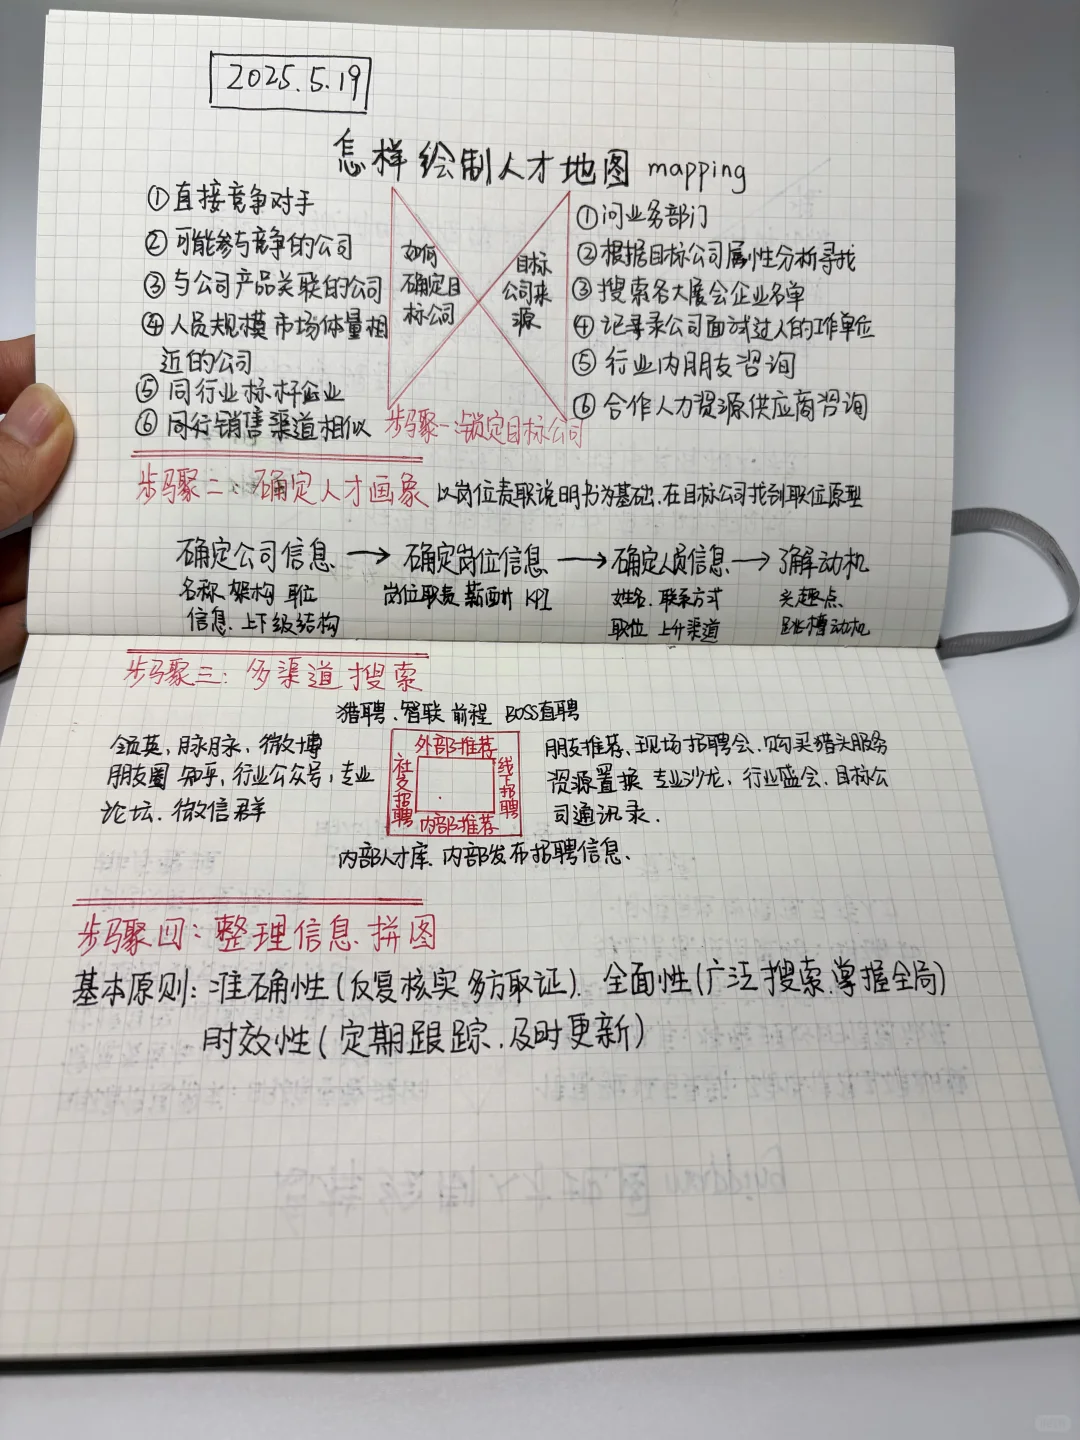 2025.5.19
怎样绘制人才地图 mapping
①直接竞争对手
②可能参与竞争的公司
③与公司产品关联的公司
④人员规模市场体量相
近的公司
⑤同行业标杆企业
⑥同行销售渠道相似
如何
确定目
标公司
目标
公司来
源
①问业务部门
②根据目标公司属性分析寻找
③搜索各大展会企业名单
④记录录公司面试过人的工作单位
⑤行业内朋友咨询
⑥合作人力资源供应商咨询
步骤一:锁定目标公司
步骤二:确定人才画象 以岗位责职说明书为基础.在目标公司找到职位原型
确定公司信息 → 确定岗位信息 → 确定人员信息 → 了解动机
名称 架构 职位 岗位职责 薪酬 KPI 姓名.联系方式 兴趣点
信息.上下级结构 职位 上升渠道 跳槽动机
步骤三:多渠道搜索
猎聘.智联 前程 BOSS直聘
领英,脉脉,微博
朋友圈 知乎,行业公众号,专业
论坛.微信群
外部推荐
社交招聘
线下招聘
内部推荐
朋友推荐、现场招聘会.购买猎头服务
资源置换 专业沙龙,行业盛会.目标公
司通讯录.
内部人才库.内部发布招聘信息.
步骤四:整理信息.拼图
基本原则:准确性(反复核实 多方取证).全面性(广泛搜索.掌握全局)
时效性(定期跟踪.及时更新)